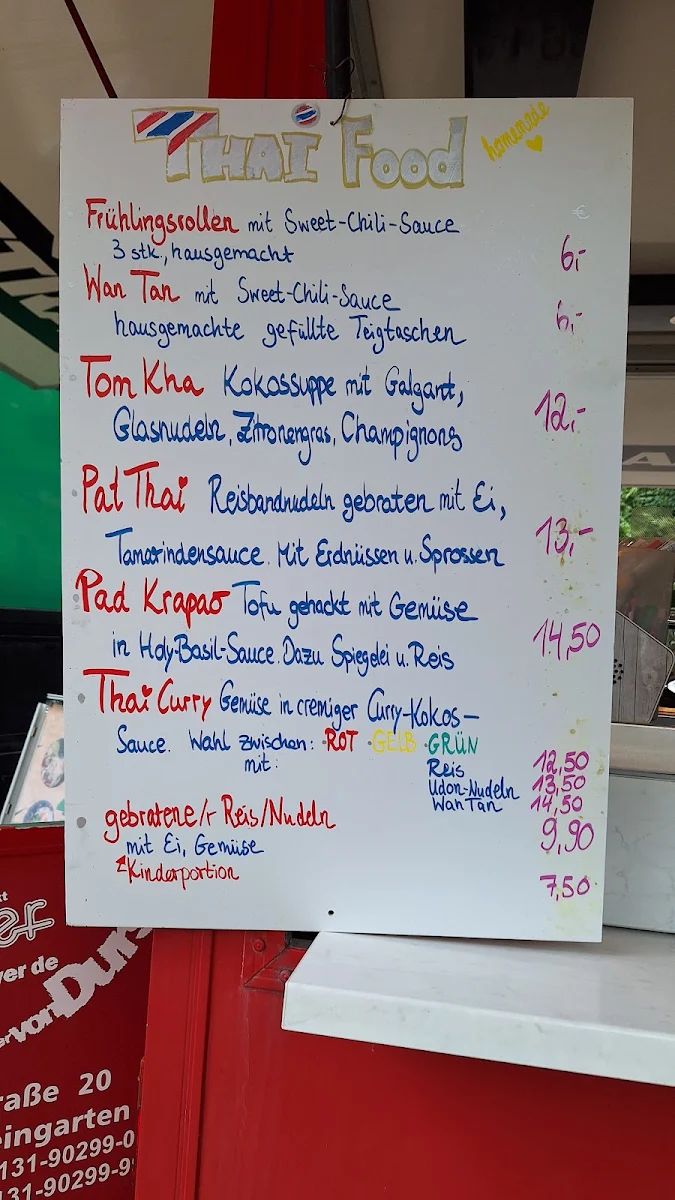 THAI FOOD homemade
€
Frühlingsrollen mit Sweet-Chili-Sauce
3 stk., hausgemacht 6,-
Wan Tan mit Sweet-Chili-Sauce
hausgemachte gefüllte Teigtaschen 6,-
Tom Kha Kokossuppe mit Galgant,
Glasnudeln, Zitronengras, Champignons 12,-
Pat Thai Reisbandnudeln gebraten mit Ei,
Tamarindensauce. Mit Erdnüssen u. Sprossen 13,-
Pad Krapao Tofu gehackt mit Gemüse
in Holy-Basil-Sauce. Dazu Spiegelei u. Reis 14,50
Thai Curry Gemüse in cremiger Curry-Kokos-
Sauce. Wahl zwischen: ·ROT ·GELB ·GRÜN
mit: Reis 12,50
Udon-Nudeln 13,50
Wan Tan 14,50
gebratene/r Reis/Nudeln 9,90
mit Ei, Gemüse
Kinderportion 7,50
er
ver de
von Durs
raße 20
eingarten
131-90299-0
131-90299-9